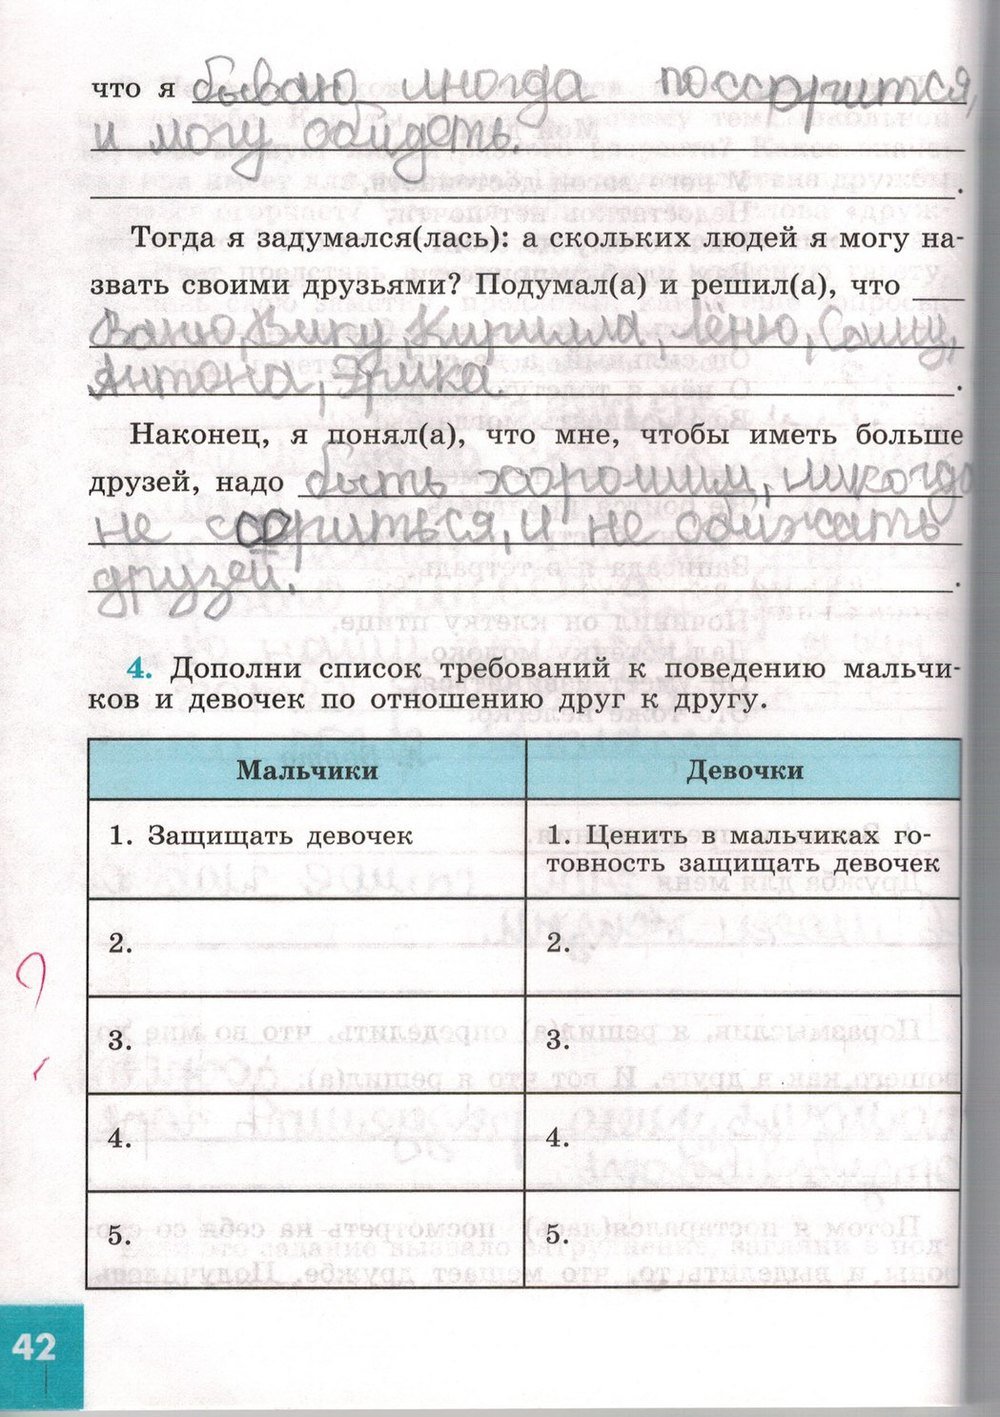 что я бываю иногда поссорится,
и могу обидеть.
.
Тогда я задумался(лась): а скольких людей я могу на-
звать своими друзьями? Подумал(а) и решил(а), что
Ваню, Вику, Кирилла, Лёню, Сашу,
Антона, Эрика.
Наконец, я понял(а), что мне, чтобы иметь больше
друзей, надо быть хорошим, никогда
не ссориться, и не обижать
друзей.
4. Дополни список требований к поведению мальчи-
ков и девочек по отношению друг к другу.
Мальчики Девочки
1. Защищать девочек 1. Ценить в мальчиках го-
товность защищать девочек
2. 2.
3. 3.
4. 4.
5. 5.
42